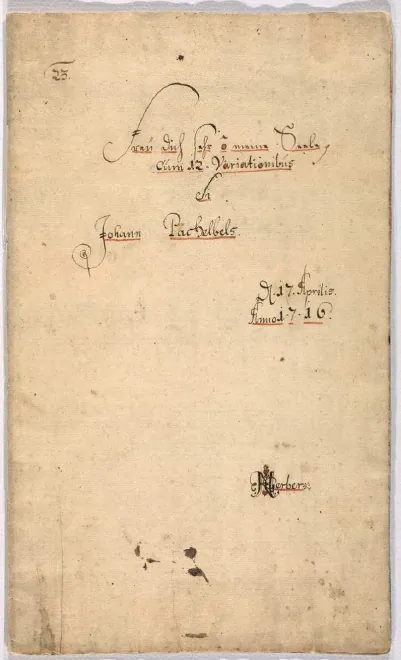 23.
Freu dich sehr ô meine Seele,
Cum 12. Variationibus
di
Johann Pachelbels.
d. 17. Aprilis.
Anno 1716.